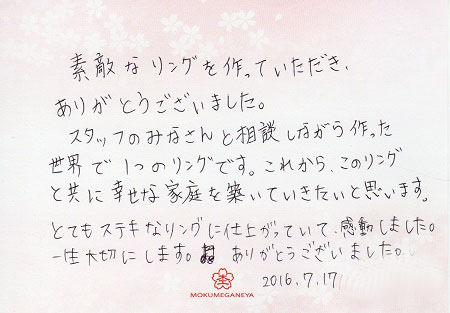 素敵なリングを作っていただき、
ありがとうございました。
スタッフのみなさんと相談しながら作った
世界で1つのリングです。これから、このリング
と共に幸せな家庭を築いていきたいと思います。
とてもステキなリングに仕上がっていて、感動しました。
一生大切にします。ありがとうございました。
2016.7.17
MOKUMEGANEYA